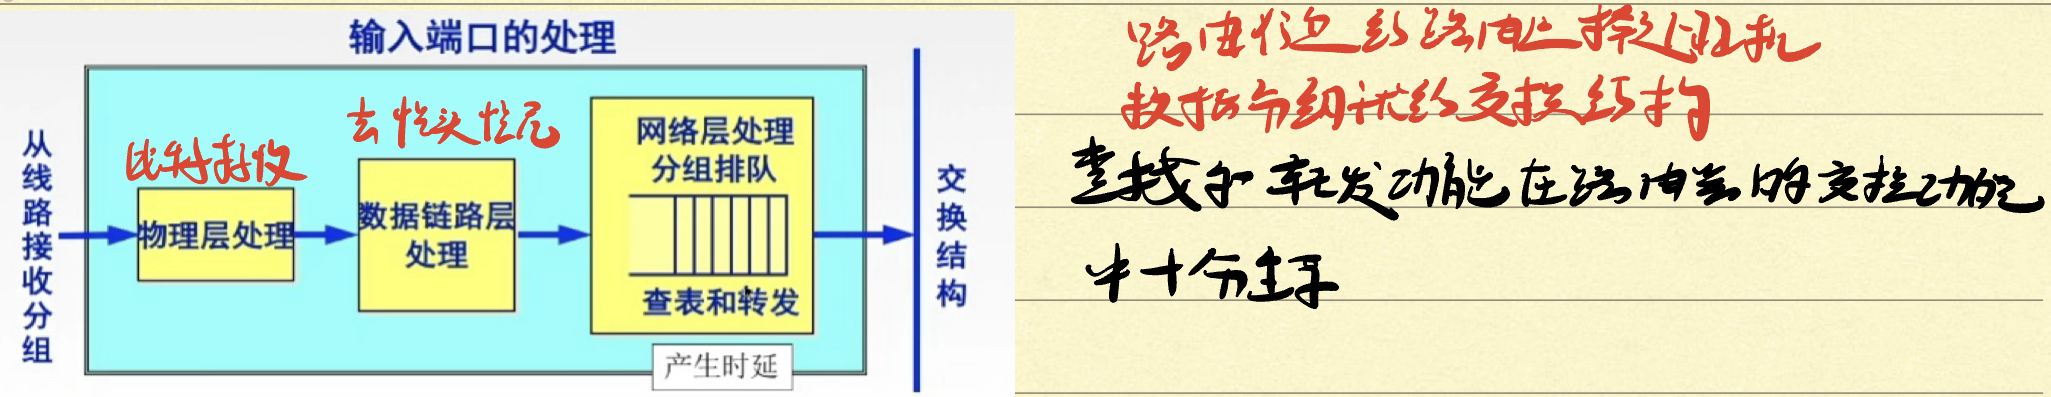 输入端口的处理
从线路接收分组
比特接收
物理层处理
去帧头帧尾
数据链路层
处理
网络层处理
分组排队
查表和转发
产生时延
交换结构
路由信息给路由选择处理机
数据分组就给交换结构
查找和转发功能在路由器的交换功能
中十分重要